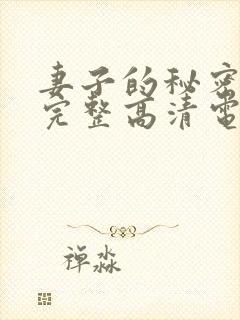 妻子的秘密
完整高清电
禅淼